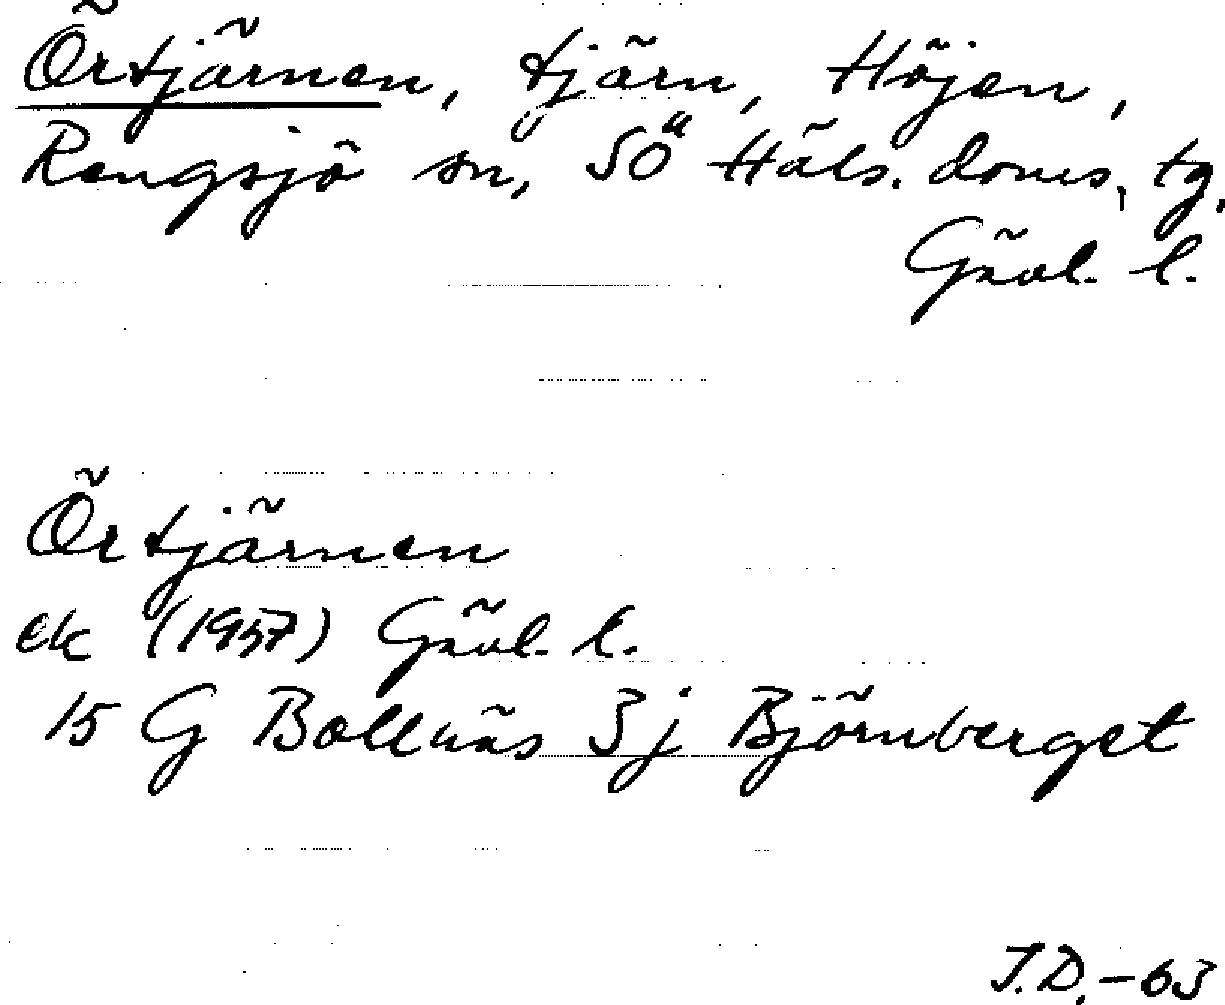 Örtjärnen, tjärn, Höjen,
Rengsjö sn, SÖ Häls. doms. tg,
Gävl. l.
Örtjärnen
ek (1957) Gävl. l.
15 G Bollnäs 3j Björnberget
J.D.-63